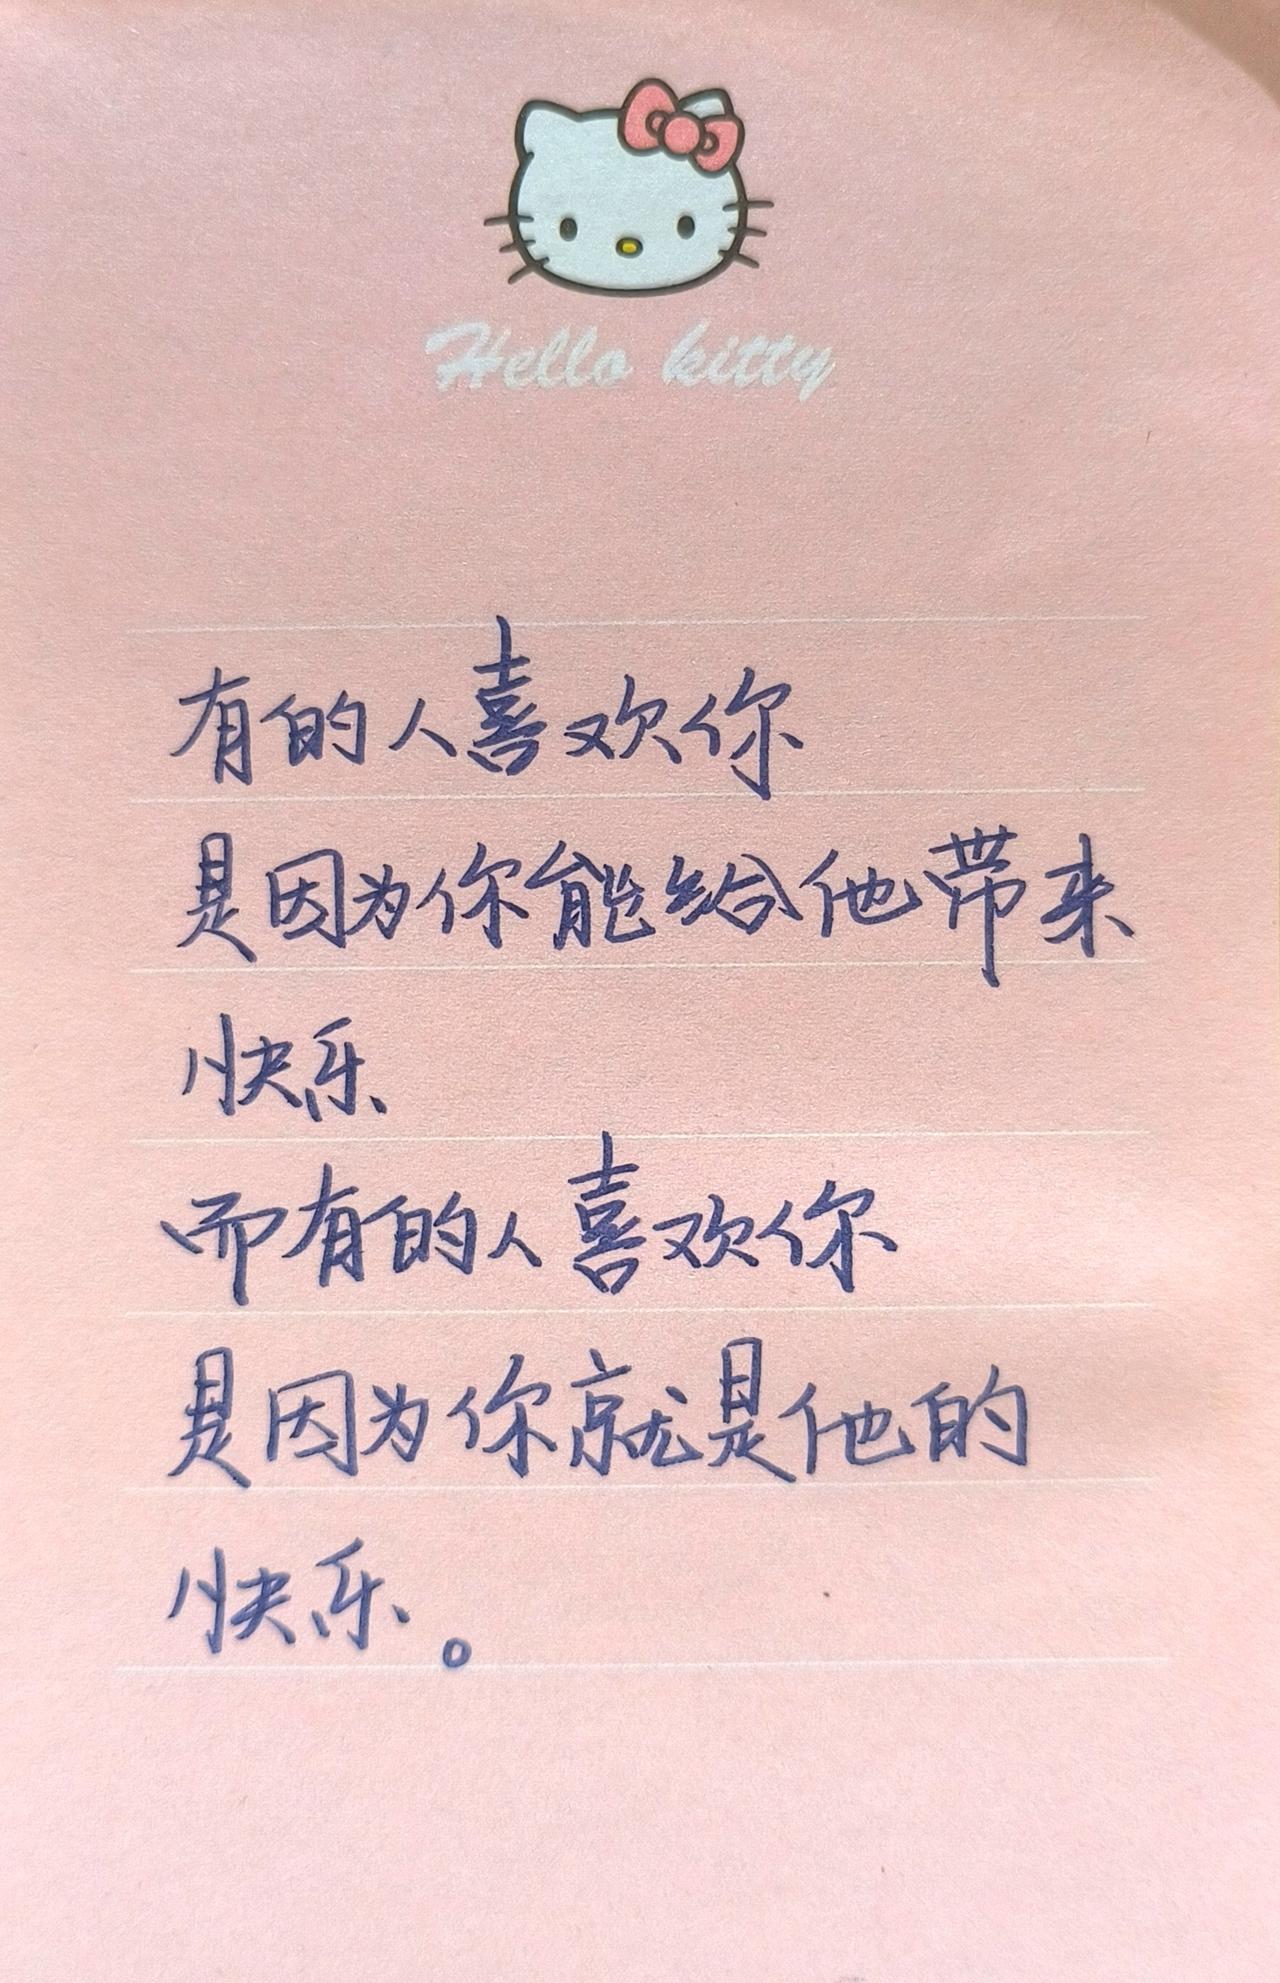 Hello kitty
有的人喜欢你
是因为你能给他带来
快乐
而有的人喜欢你
是因为你就是他的
快乐。